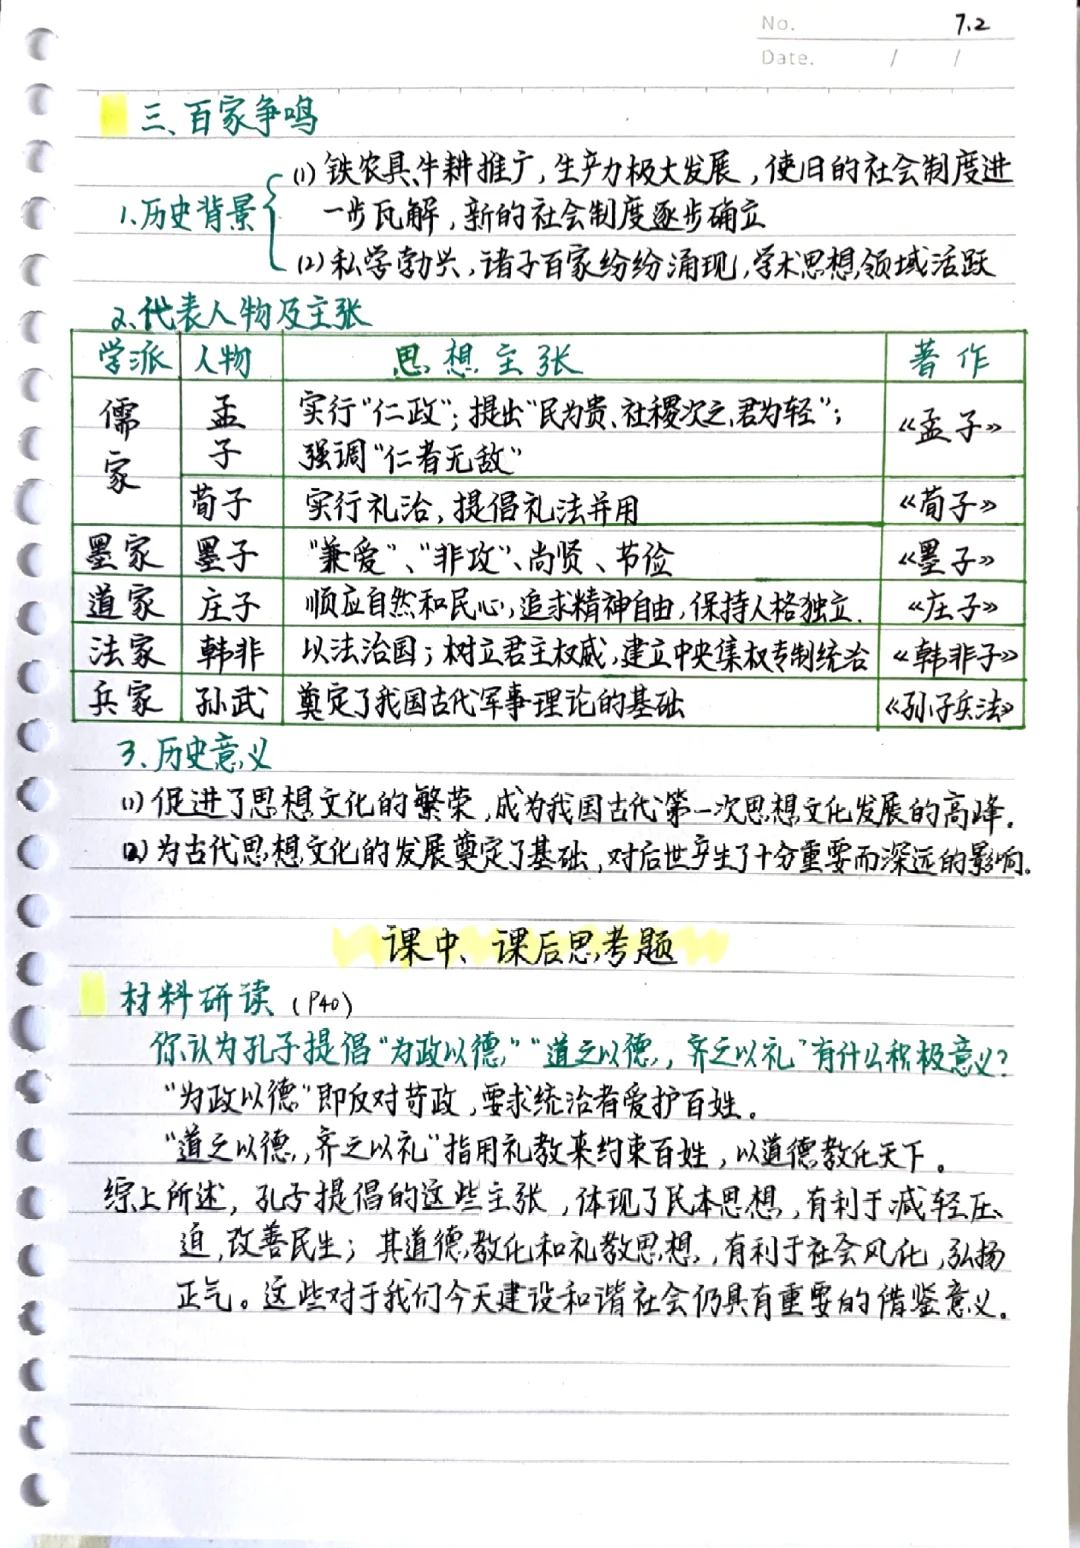 No. 7.2
Date. / /
三、百家争鸣
(1) 铁农具、牛耕推广,生产力极大发展,使旧的社会制度进
1.历史背景
一步瓦解,新的社会制度逐步确立
(2) 私学勃兴,诸子百家纷纷涌现,学术思想领域活跃
2.代表人物及主张
学派 人物 思想主张 著作
儒家 孟子 实行“仁政”;提出“民为贵、社稷次之、君为轻”; 《孟子》
强调“仁者无敌”
荀子 实行礼治,提倡礼法并用 《荀子》
墨家 墨子 “兼爱”、“非攻”、尚贤、节俭 《墨子》
道家 庄子 顺应自然和民心,追求精神自由,保持人格独立. 《庄子》
法家 韩非 以法治国;树立君主权威,建立中央集权专制统治 《韩非子》
兵家 孙武 奠定了我国古代军事理论的基础 《孙子兵法》
3.历史意义
(1) 促进了思想文化的繁荣,成为我国古代第一次思想文化发展的高峰.
(2) 为古代思想文化的发展奠定了基础,对后世产生了十分重要而深远的影响.
课中、课后思考题
材料研读 (P40)
你认为孔子提倡“为政以德”“道之以德,齐之以礼”有什么积极意义?
“为政以德”即反对苛政,要求统治者爱护百姓。
“道之以德,齐之以礼”指用礼教来约束百姓,以道德教化天下。
综上所述,孔子提倡的这些主张,体现了民本思想,有利于减轻压
迫,改善民生;其道德教化和礼教思想,有利于社会风化,弘扬
正气。这些对于我们今天建设和谐社会仍具有重要的借鉴意义。